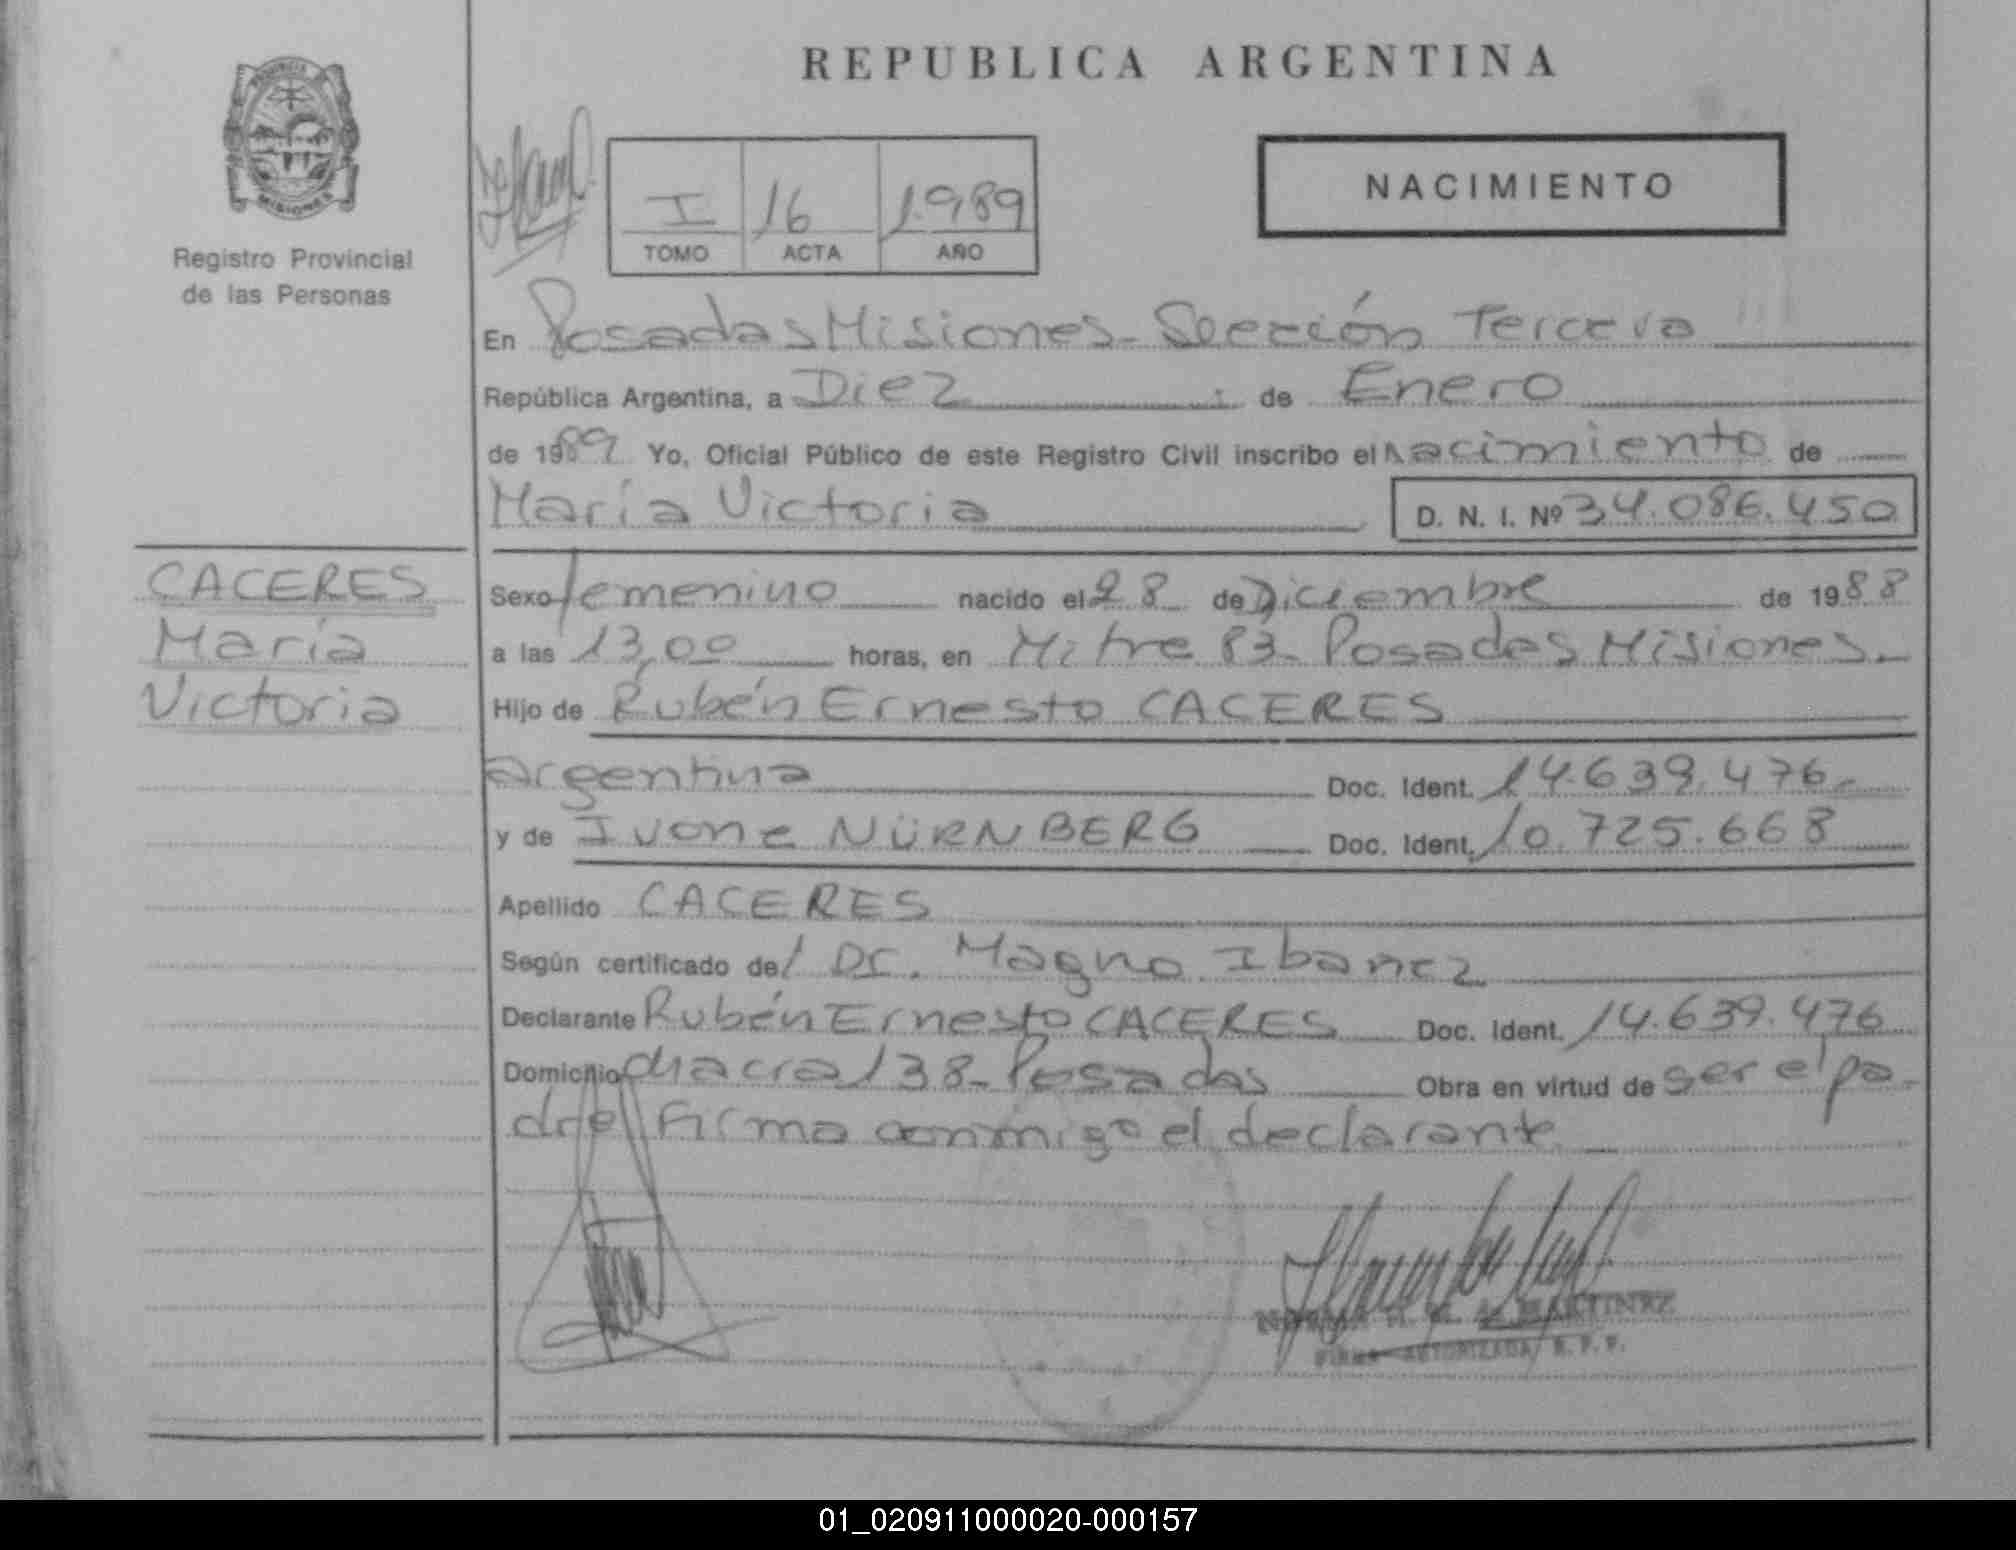 REPUBLICA ARGENTINA
PROVINCIA
MISIONES
Registro Provincial
de las Personas
I 16 1989
TOMO ACTA AÑO
NACIMIENTO
En Posadas Misiones - Sección Tercera
República Argentina, a Diez de Enero
de 1989 Yo, Oficial Público de este Registro Civil inscribo el nacimiento de
María Victoria D. N. I. Nº 34.086.450
CACERES
María
Victoria
Sexo femenino nacido el 28 de Diciembre de 1988
a las 13,00 horas, en Mitre 83 - Posadas Misiones.-
Hijo de Rubén Ernesto CACERES
argentina Doc. Ident. 14.639.476.-
y de Ivone NÜRNBERG Doc. Ident. 10.725.668
Apellido CACERES
Según certificado del Dr. Magno Ibanez
Declarante Rubén Ernesto CACERES Doc. Ident. 14.639.476
Domicilio chacra 138 - Posadas Obra en virtud de ser el pa-
dre// Firma conmigo el declarante
MARTINEZ
FIRMA AUTORIZADA R. P. P.
01_020911000020-000157